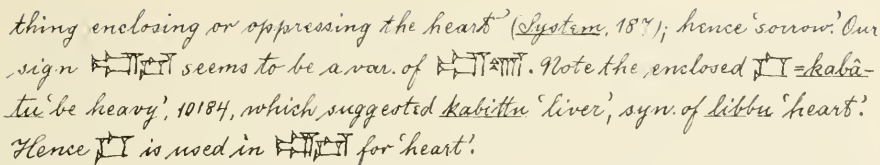 thing enclosing or oppressing the heart' (System, 187); hence 'sorrow.' Our
sign seems to be a var. of . Note the enclosed = kabâ-
tu 'be heavy', 10184, which suggested kabittu 'liver', syn. of libbu 'heart'.
Hence is used in for 'heart'.